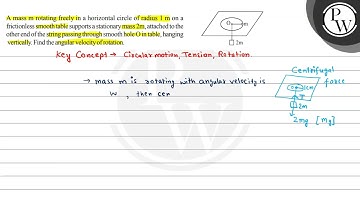 A mass m rotating freely in a horizontal circle of radius 1 m on a
frictionless smooth table supports a stationary mass 2m, attached to the
other end of the string passing through smooth hole O in table, hanging
vertically. Find the angular velocity of rotation.
O
m
2m
PW
Key Concept → Circular motion, Tension, Rotation.
→ mass m is rotating with angular velocity is
w, then cen
Centrifugal
force
T
2m
2mg [mg]